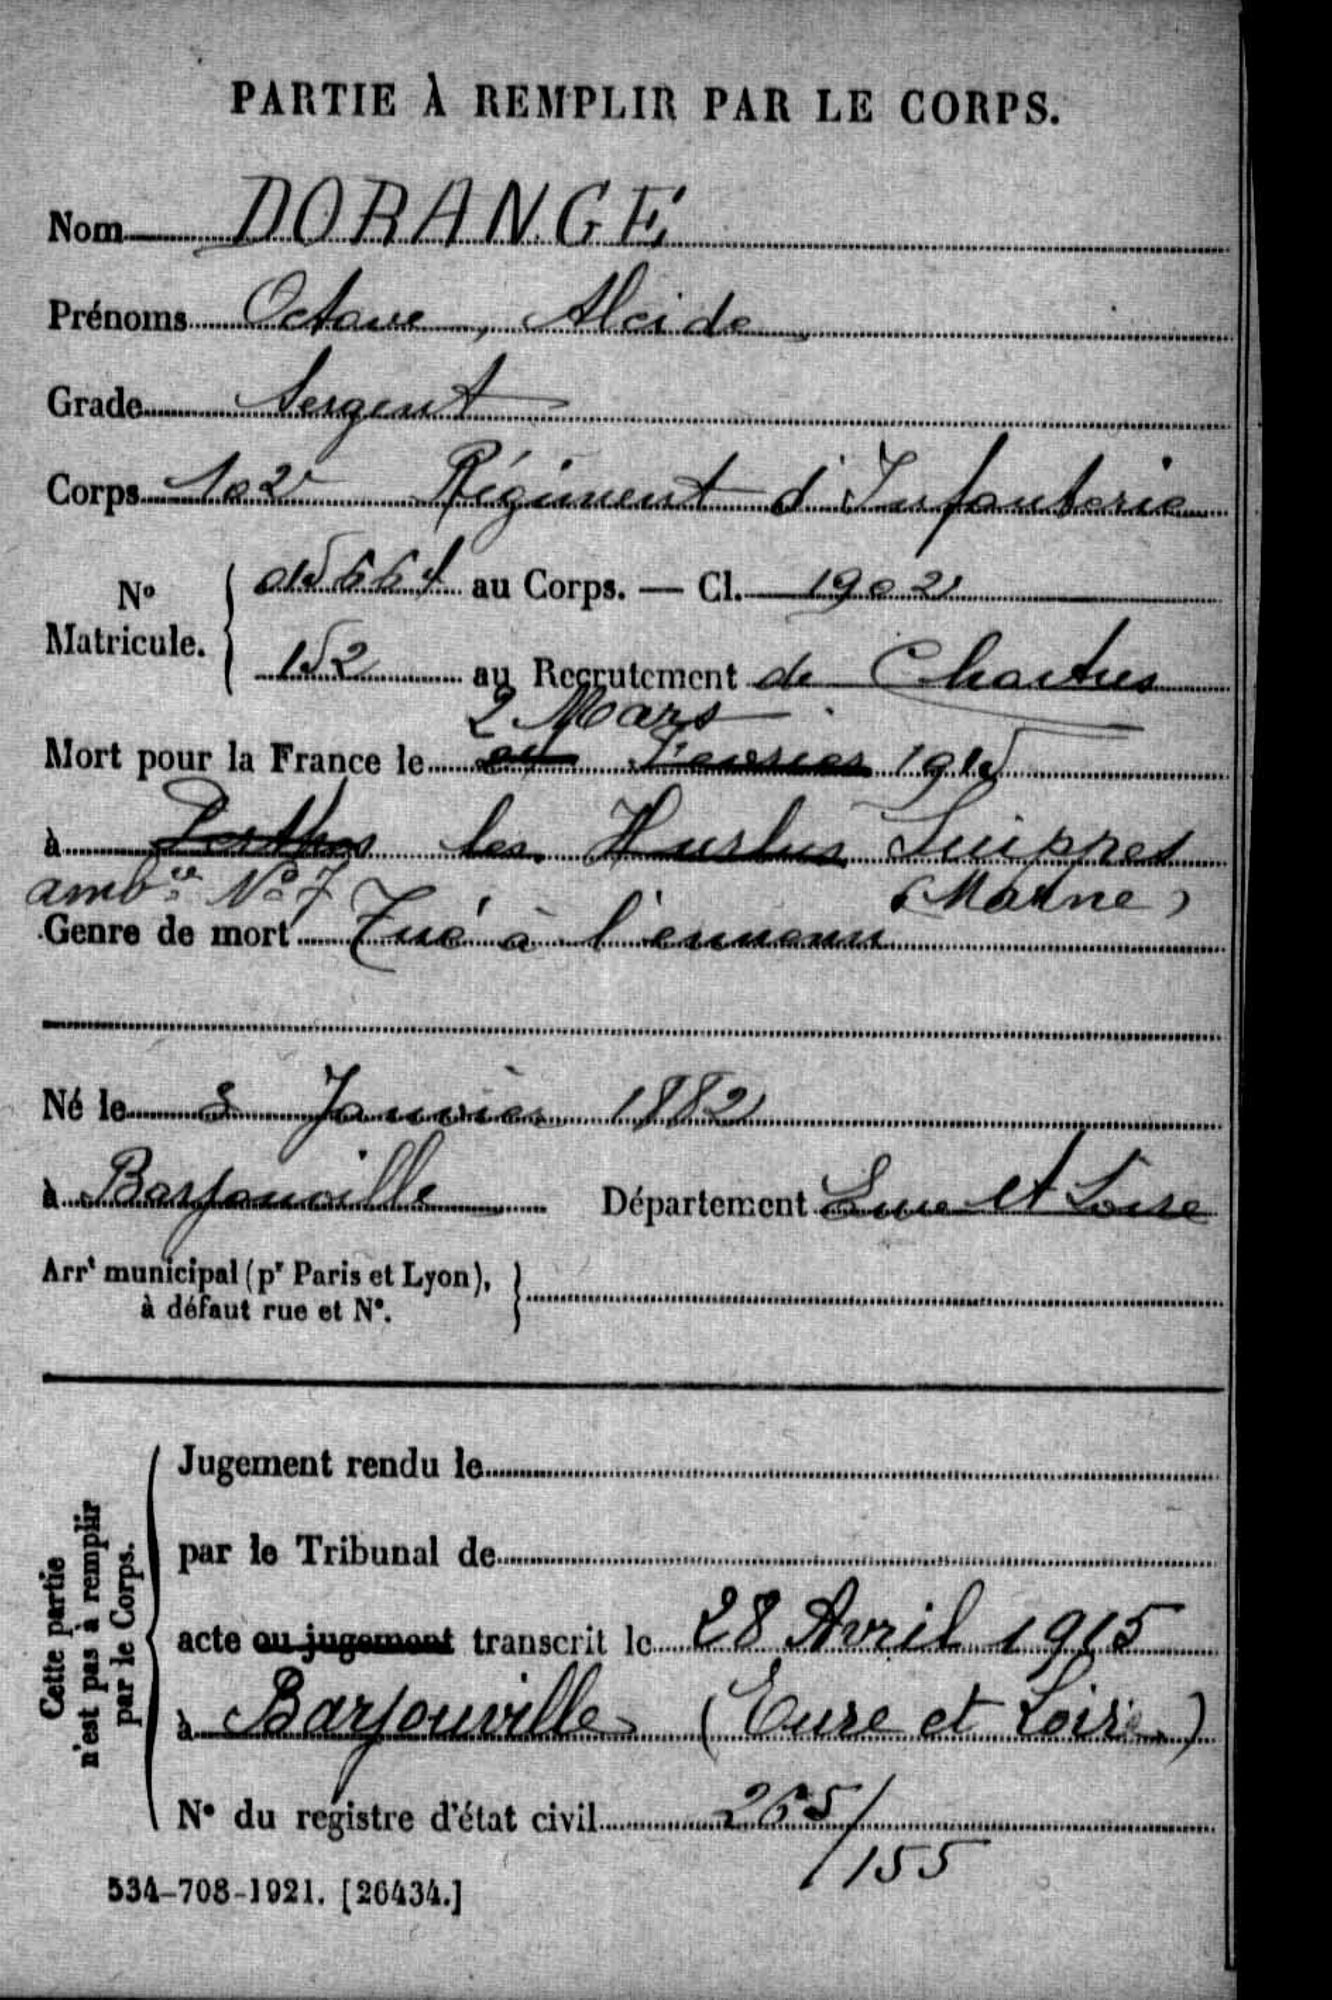 PARTIE À REMPLIR PAR LE CORPS.
Nom DORANGE
Prénoms Octave, Alcide
Grade Sergent
Corps 102e Régiment d'Infanterie
No Matricule. 015664 au Corps. — Cl. 1902
152 au Recrutement de Chartres
2 Mars
Mort pour la France le Février 1915
à Perthes les Hurlus Suippes
ambce No 7 (Marne)
Genre de mort Tué à l'ennemi
Né le 3 Janvier 1882
à Barjouville Département Eure et Loire
Arrt municipal (pr Paris et Lyon),
à défaut rue et No.
Cette partie
n'est pas à remplir
par le Corps.
Jugement rendu le
par le Tribunal de
acte ou jugement transcrit le 28 Avril 1915
à Barjouville (Eure et Loire)
No du registre d'état civil 265/
155
534-708-1921. [26434.]